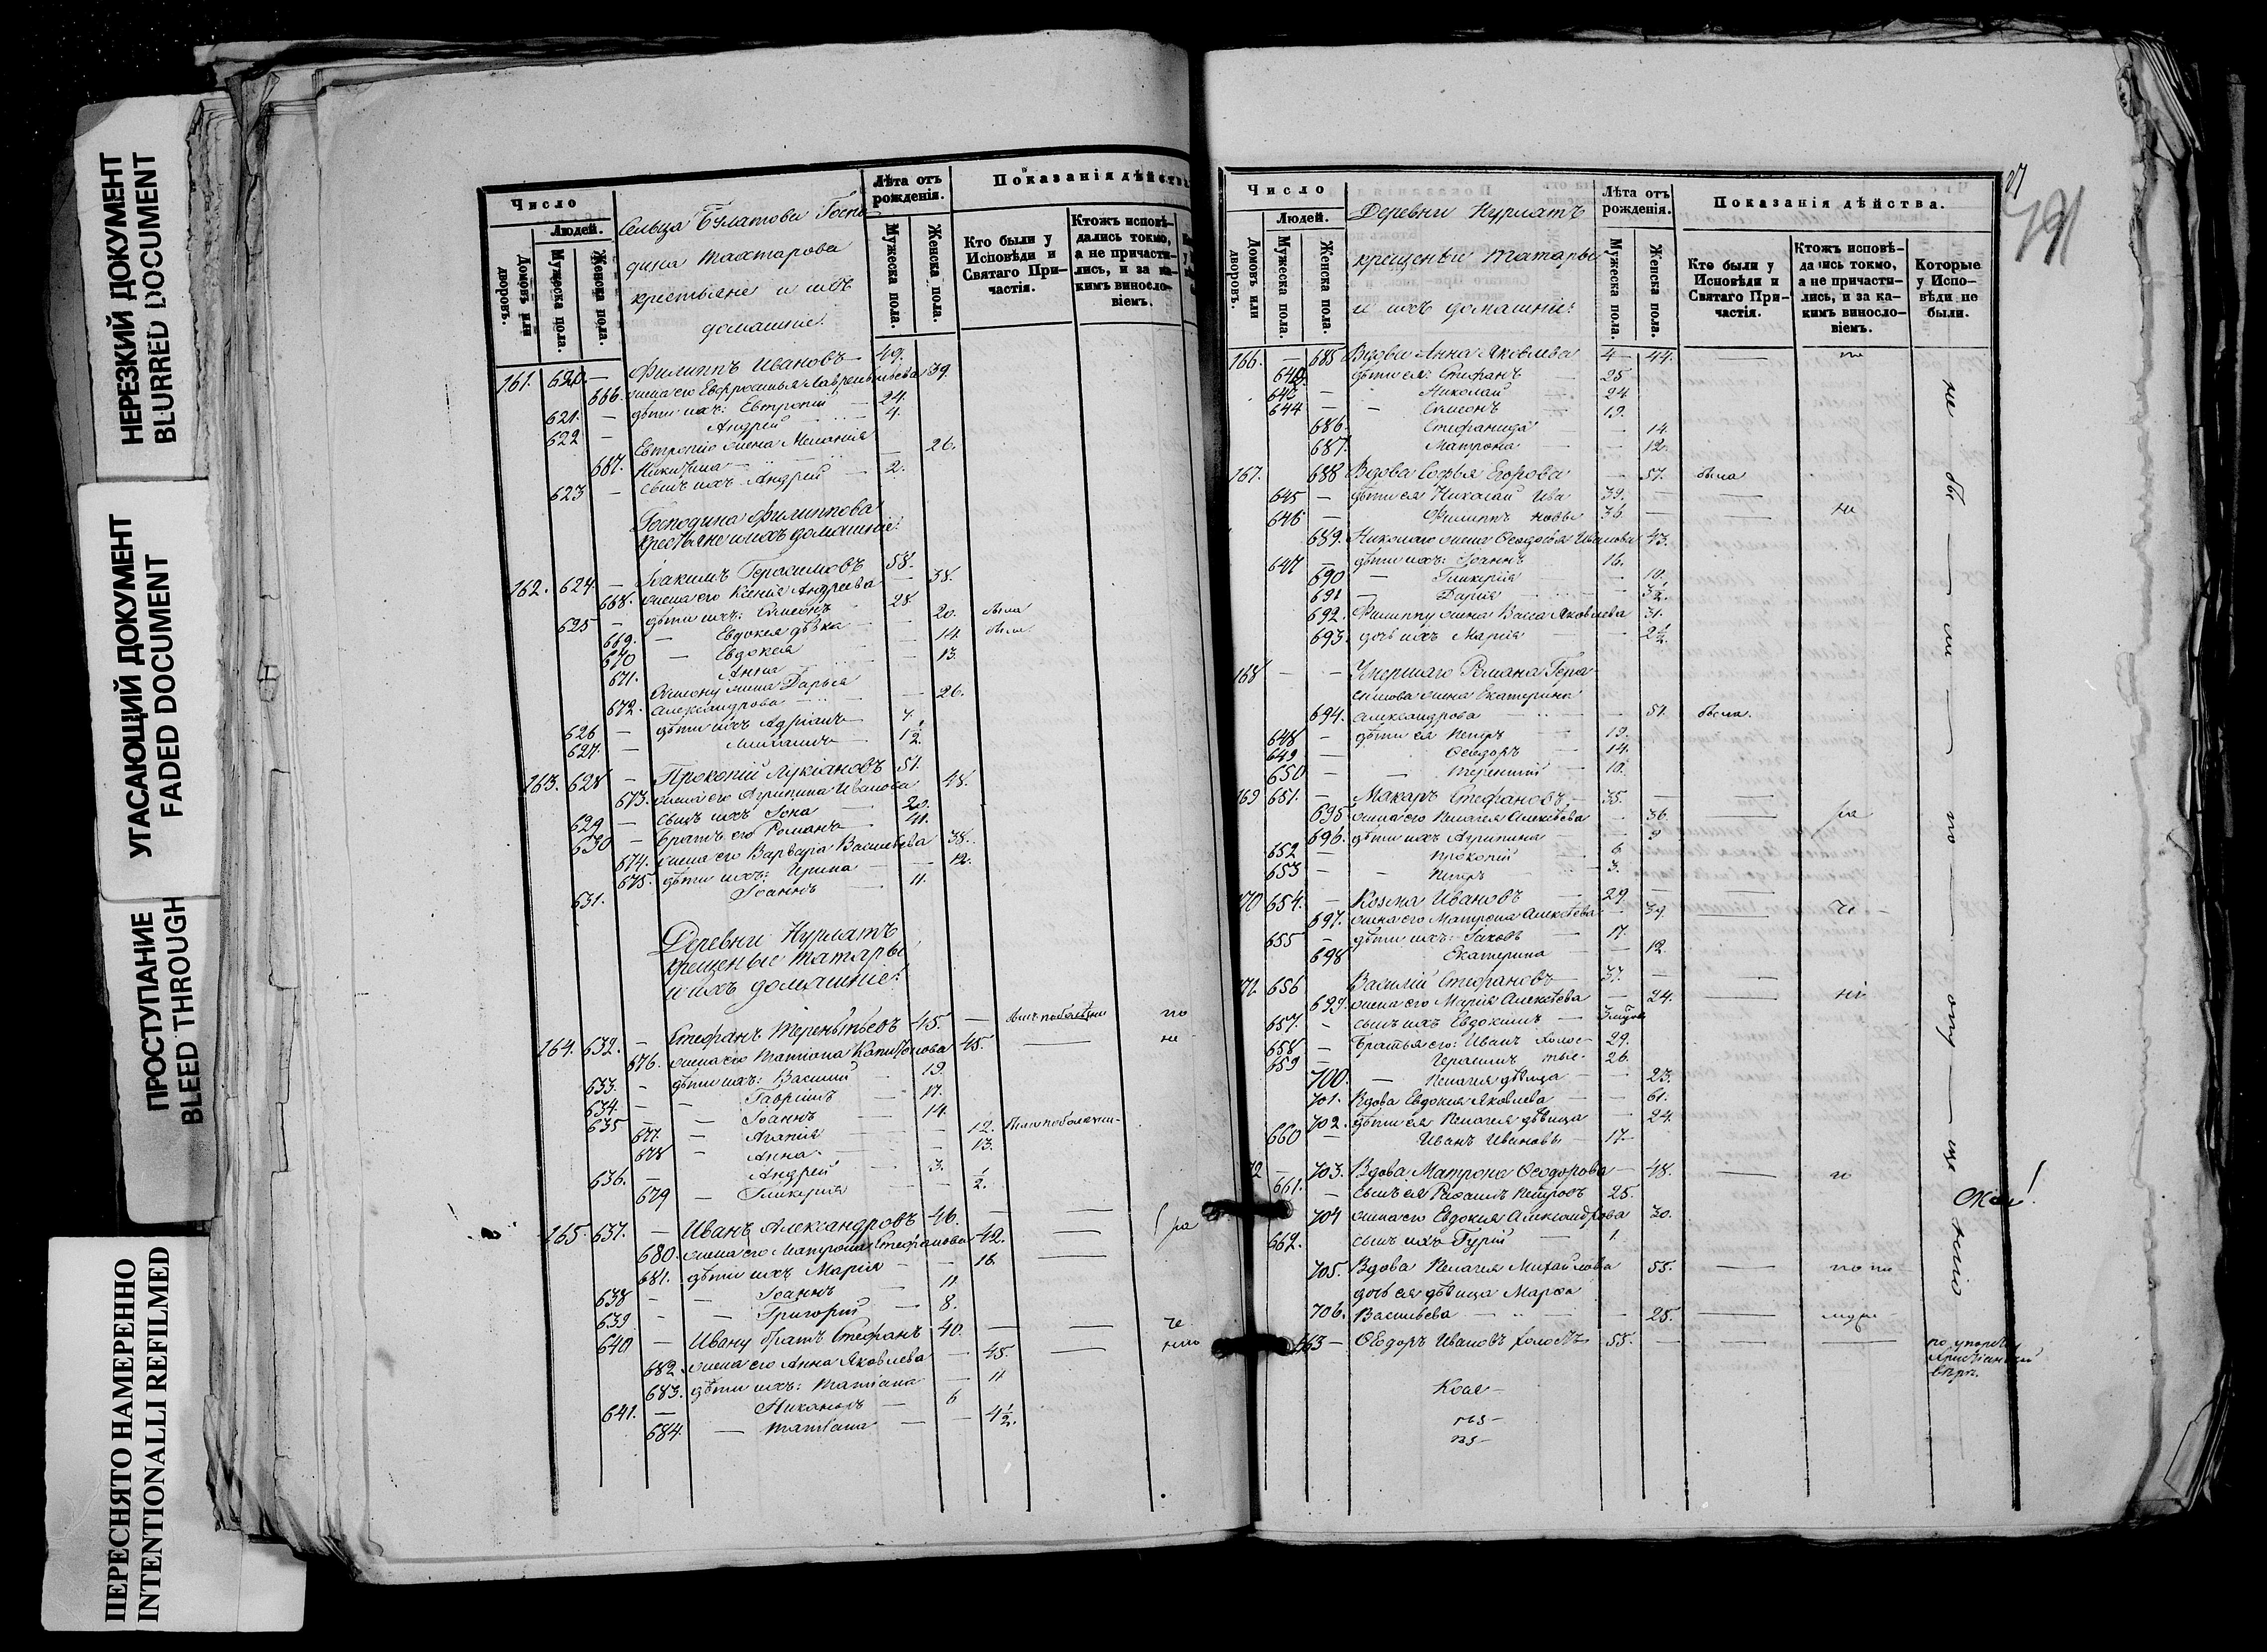 НЕРЕЗКИЙ ДОКУМЕНТ
BLURRED DOCUMENT
УГАСАЮЩИЙ ДОКУМЕНТ
FADED DOCUMENT
ПРОСТУПАНИЕ
BLEED THROUGH
ПЕРЕСНЯТО НАМЕРЕННО
INTENTIONALLI REFILMED
Число
Людей.
Домовъ или дворовъ.
Мужеска пола.
Женска пола.
Сельца Булатова Госпо-
дина Тахтарова
крестьяне и ихъ
домашніе:
Лѣта отъ рожденія.
Мужеска пола.
Женска пола.
Показанія дѣйств
Кто были у Исповѣди и Святаго Причастія.
Ктожъ исповѣдались токмо, а не причастились, и за какимъ винословіемъ.
161. 620 — Филиппъ Ивановъ 49.
666. жена его Евфросинья Лаврентьева 39.
621. — дѣти ихъ: Евтропій — 24.
622 — Андрей — 4.
Евтропію жена Меланія
667. Никитина — 26.
623 — сынъ ихъ Андрей — 2.
Господина Филиппова
крестьяне и ихъ домашніе:
162. 624. — Іоакимъ Герасимовъ 58.
668. жена его Ксенія Андреева — 38.
625 — дѣти ихъ: Симеонъ — 28.
669. — Евдокея дѣвка — 20. была
670 — Евдокея — 14. была
671. Анна — 13.
Симеону жена Дарья
672. Александрова — 26.
626 — дѣти ихъ Адріанъ — 4.
627. — Михаилъ — 1½.
163. 628 — Прокопій Лукіановъ 51.
673. жена его Агрипина Иванова 48.
629 — сынъ ихъ Іона — 20.
630 — Братъ его Романъ — 41.
674. жена его Варвара Васильева 38.
675. дѣти ихъ: Ирина — 12.
631. Іоаннъ — 11.
Деревни Нурлатъ
крещеные татары
и ихъ домашніе:
164. 632. — Стефанъ Терентьевъ 45. —
676. жена его Татіана Капитонова 45. — не
633. — дѣти ихъ: Василій — 19.
634. — — Гавріилъ — 17.
635 — — Іоаннъ — 14.
677. — Агапія — 12.
678 — Анна — 13.
636. — Андрей — 3.
679 — Гликерія — ½.
165. 637. — Иванъ Александровъ 46. —
680. жена его Матрона Стефанова 42. — ра
681. дѣти ихъ Марія — 16.
638 — — Іоаннъ — 11.
639 — — Григорій — 8.
640 — Ивану братъ Стефанъ 40. —
682 жена его Анна Яковлева — 45. —
683. дѣти ихъ: Татіана — 11
641. — Никаноръ — 6
684. — Татіана — 4½.
Число
Людей.
Домовъ или дворовъ.
Мужеска пола.
Женска пола.
Деревни Нурлатъ
крещеные татары
и ихъ домашніе:
Лѣта отъ рожденія.
Мужеска пола.
Женска пола.
Показанія дѣйства.
Кто были у Исповѣди и Святаго Причастія.
Ктожъ исповѣдались токмо, а не причастились, и за какимъ винословіемъ.
Которые у Исповѣди не были.
166. — 685 Вдова Анна Яковлева — 44. —
642. дѣти ея: Стефанъ — 25
643 — Николай — 24
644 — — Симеонъ — 19.
686. Стефанида — 14
687. Матрона — 12.
167. 688 Вдова Софья Егорова — 51. была
645 — дѣти ея Николай Ива 39. —
646 — Филиппъ новы 36 — не
689. Николаю жена Феодосья Иванова 43.
647 — дѣти ихъ: Іоаннъ — 16.
690 — Гликерія — 10.
691 — Дарія — 3½.
692. Филиппу жена Васса Яковлева 31.
693. дочь ихъ Марія — 2½.
168 — — Умершаго Романа Гера-
симова жена Екатерина
694. Александрова — 51. была.
648 — дѣти ея Петръ — 19.
649 — Феодоръ — 14.
650 — — Терентій — 10.
169 651. — Макаръ Стефановъ. 35. —
695 жена его Пелагея Алексѣева — 36. — ра
696. дѣти ихъ Агрипина — 9
652 — Прокопій — 6
653 — — Петръ — 3.
170 654. — Козма Ивановъ — 29 —
697. жена его Матрона Алексѣева — 37. —
655 — дѣти ихъ: Іаковъ — 17.
698 Екатерина — 12.
171. 656 Василій Стефановъ — 37. —
699. жена его Марія Алексѣева — 24. —
657. — сынъ ихъ Евдокимъ —
658 — Братья его: Иванъ холос- 29.
659 Герасимъ тые- 26.
700. — Пелагея дѣвица — 23.
701. Вдова Евдокія Яковлева — 61.
702. дѣти ея Пелагея дѣвица — 24.
660 — Иванъ Ивановы — 17.
172 — 703. Вдова Матрона Феодорова — 48. —
661. — сынъ ея Рафаилъ Петровъ 25.
704 жена его Евдокія Александрова 30.
662. сынъ ихъ Гурій — 1.
705. Вдова Пелагея Михайлова 55. —
дочь ея дѣвица Марѳа
706. Васильева — 25. —
663 — Ѳеодоръ Ивановъ холостъ 55. —
по упорству
Христіанской
вѣрѣ.